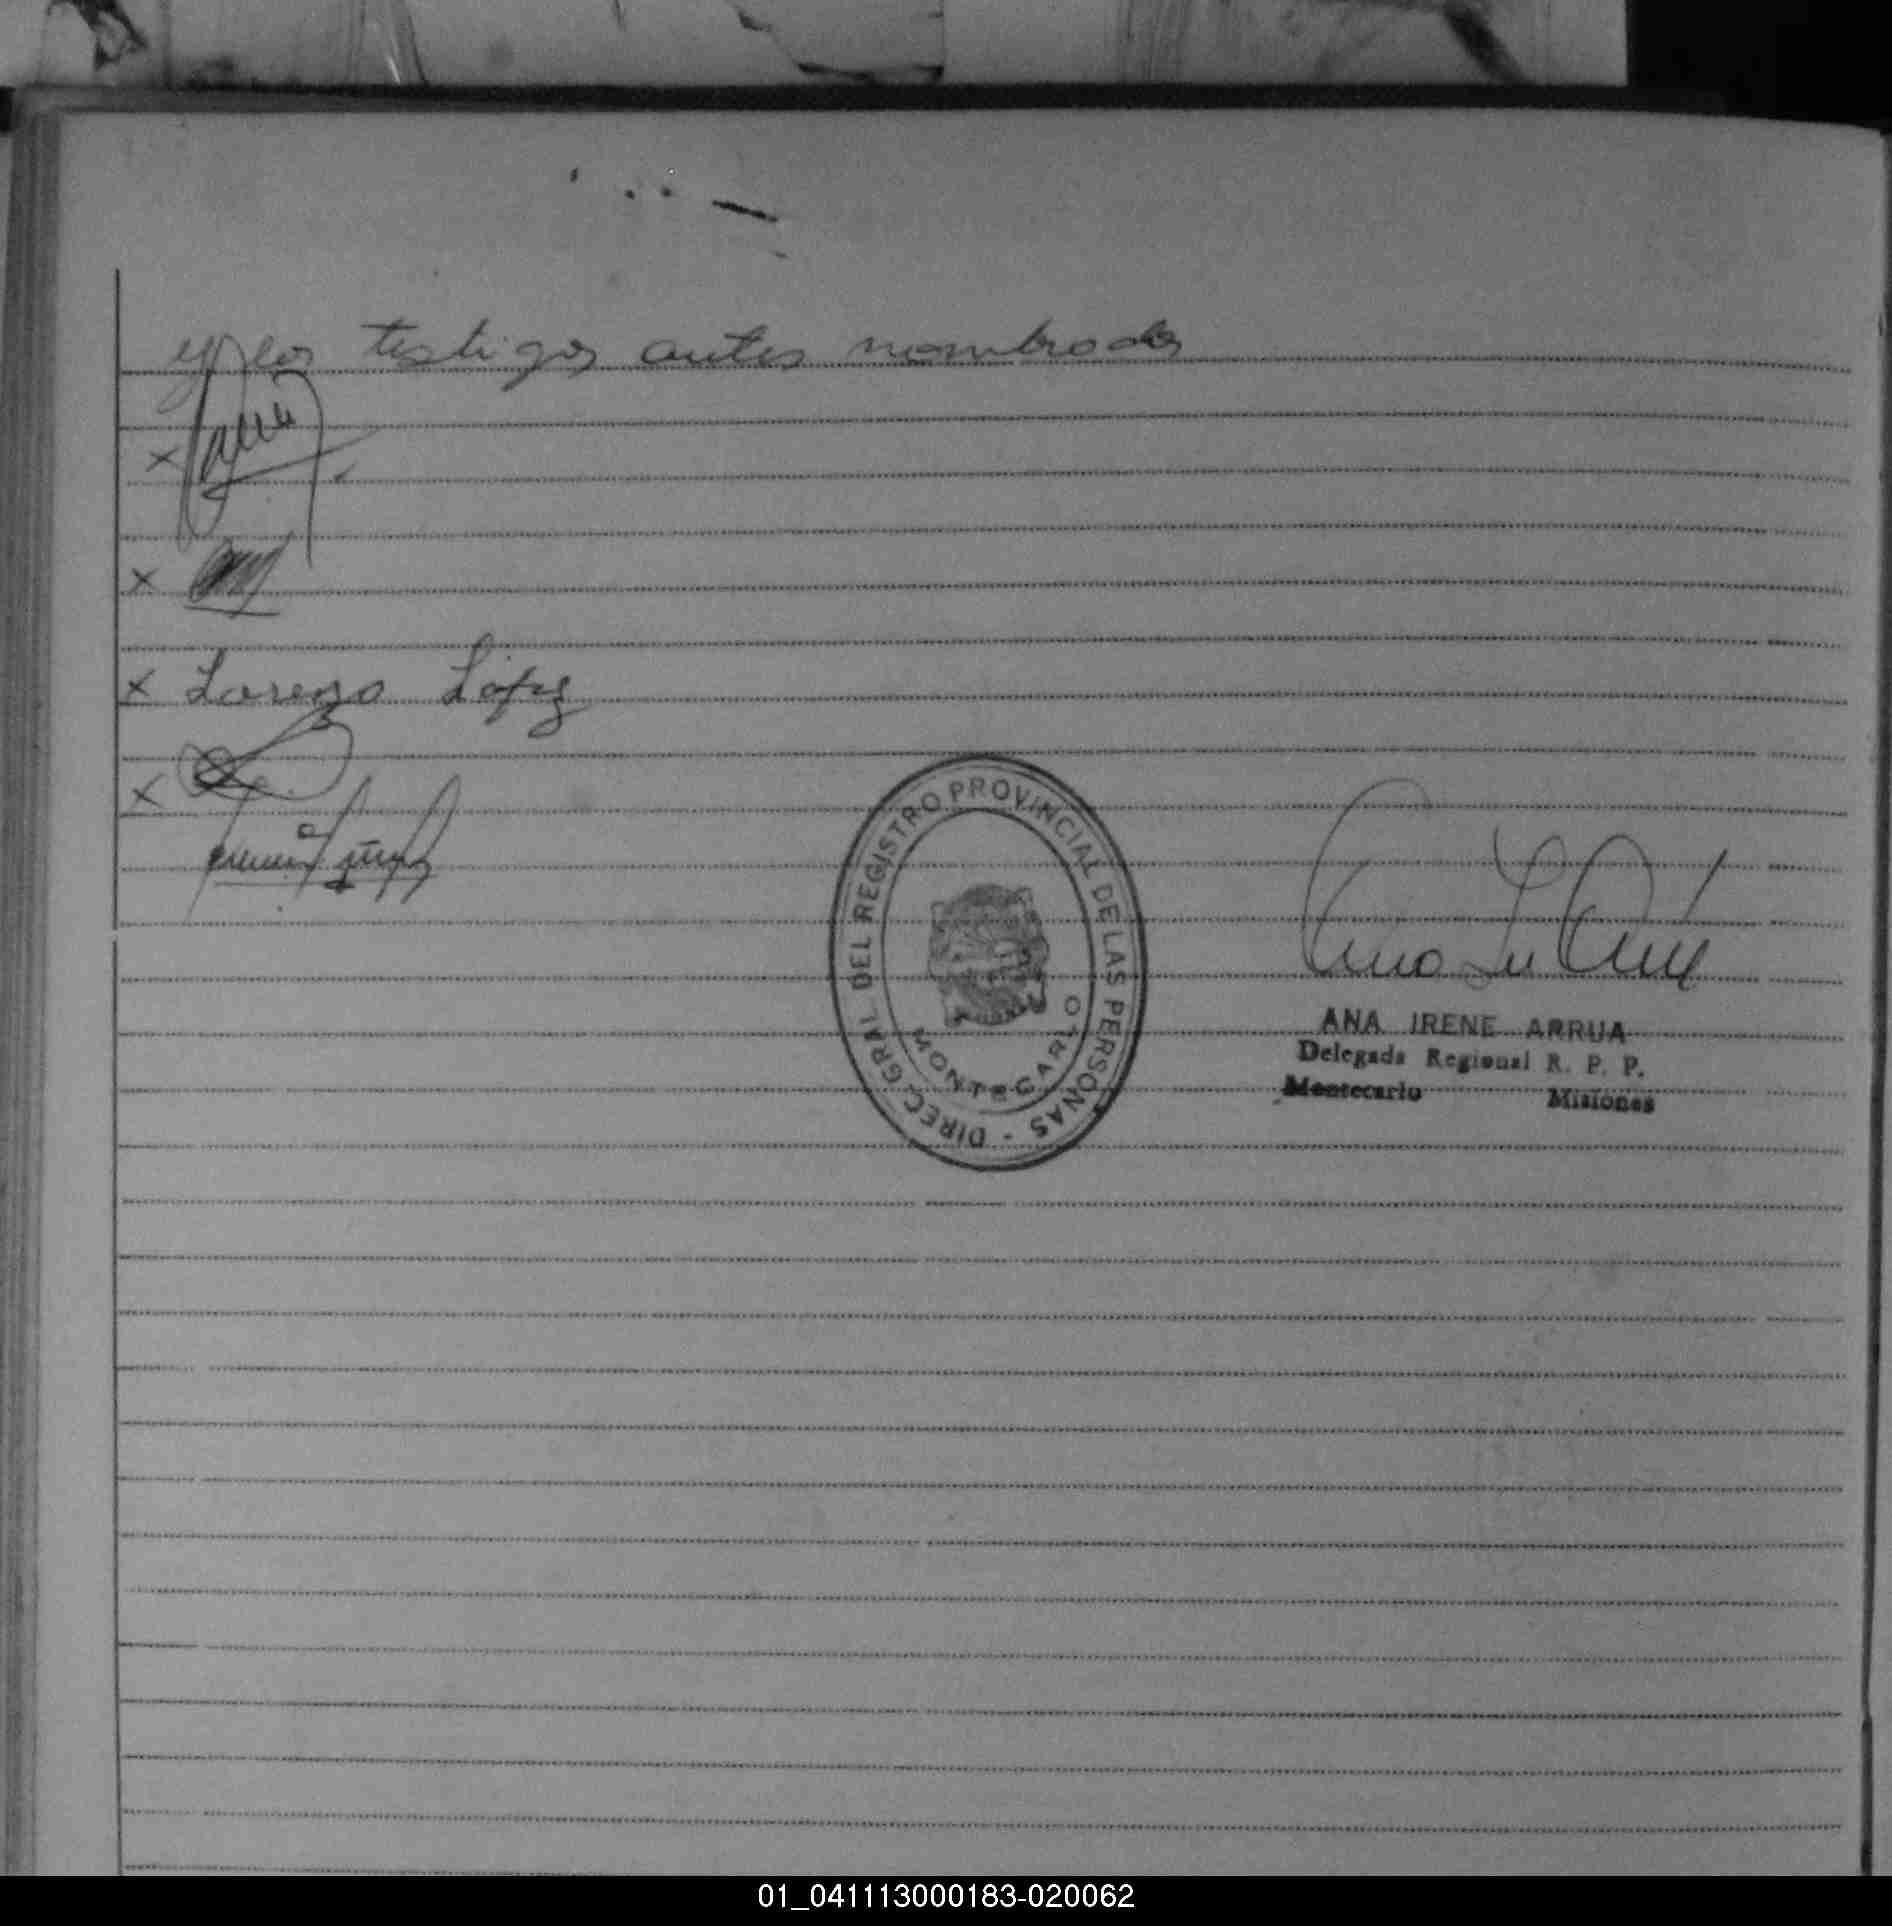 y los testigos antes nombrados
x
x
x Lorenzo López
x
DIREC. GRAL DEL REGISTRO PROVINCIAL DE LAS PERSONAS -
MONTECARLO
ANA IRENE ARRUA
Delegada Regional R. P. P.
Montecarlo Misiones
01_041113000183-020062